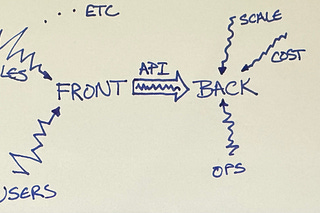 ... ETC
SCALE
COST
API
FRONT
BACK
OPS
USERS